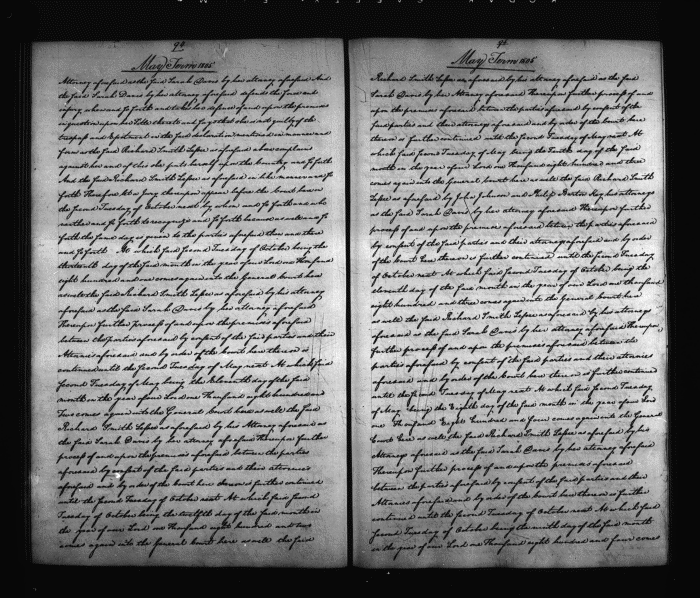 94
May Term 1805
Attorney aforesaid as the said Sarah Davis by her attorney aforesaid And
the said Sarah Davis by her attorney aforesaid defends the force and
injury when and so forth and
in question upon her Title and saith that she is not guilty of the
trespass and Ejectment in the said declaration mentioned in manner and
form as the said Richard Smith Lessee as aforesaid above complains
against her and of this she puts herself upon the Country and so forth
And the said Richard Smith Lessee as aforesaid in like manner and so
forth Therefore let a Jury thereupon appear before the Court here on
the second Tuesday of October next by whom and so forth and who
neither and so forth to recognize and so forth because as well and so
forth the same day is given to the parties aforesaid then and there
and so forth At which said second Tuesday of October being the
thirteenth day of the said month in the year of our Lord one thousand
eight hundred and one comes again into the General Court here
as well the said Richard Smith Lessee as aforesaid by his attorney
aforesaid as the said Sarah Davis by her attorney aforesaid
Thereupon further process of and upon the premises aforesaid
between the parties aforesaid by consent of the said parties and their
Attornies aforesaid and by order of the Court here thereon is
continued until the second Tuesday of May next At which said
second Tuesday of May being the Eleventh day of the said
month in the year of our Lord one thousand eight hundred and
Two comes again into the General Court here as well the said
Richard Smith Lessee as aforesaid by his Attorney aforesaid as
the said Sarah Davis by her attorney aforesaid Thereupon further
process of and upon the premises aforesaid between the parties
aforesaid by consent of the said parties and their attornies
aforesaid and by order of the Court here thereon is further continued
until the second Tuesday of October next At which said second
Tuesday of October being the twelfth day of the said month in
the year of our Lord one Thousand eight hundred and two
comes again into the General Court here as well the said
94
May Term 1805
Richard Smith Lessee as aforesaid by his attorney aforesaid as the said
Sarah Davis by her Attorney aforesaid Thereupon further process of and
upon the premises aforesaid between the parties aforesaid by consent of the
said parties and their attornies aforesaid and by order of the Court here
thereon is further continued until the second Tuesday of May next At
which said second Tuesday of May being the Tenth day of the said
month in the year of our Lord one thousand eight hundred and three
comes again into the General Court here as well the said Richard Smith
Lessee as aforesaid by John Johnson and Philip Barton Key his attornies
as the said Sarah Davis by her attorney aforesaid Thereupon further
process of and upon the premises aforesaid between the parties aforesaid
by consent of the said parties and their attornies aforesaid and by order
of the Court here thereon is further continued until the second Tuesday
of October next At which said second Tuesday of October being the
eleventh day of the said month in the year of our Lord one thousand
eight hundred and three comes again into the General Court here
as well the said Richard Smith Lessee as aforesaid by his attornies
aforesaid as the said Sarah Davis by her attorney aforesaid Thereupon
further process of and upon the premises aforesaid between the
parties aforesaid by consent of the said parties and their attornies
aforesaid and by order of the Court here thereon is further continued
until the second Tuesday of May next At which said second Tuesday
of May being the Eighth day of the said month in the year of our Lord
one Thousand Eight hundred and four comes again into the General
Court here as well the said Richard Smith Lessee as aforesaid by his
Attornies aforesaid as the said Sarah Davis by her attorney aforesaid
Thereupon further process of and upon the premises aforesaid
between the parties aforesaid by consent of the said parties and their
Attornies aforesaid and by order of the Court here thereon is further
continued until the second Tuesday of October next At which said
second Tuesday of October being the ninth day of the said month
in the year of our Lord one Thousand eight hundred and four comes